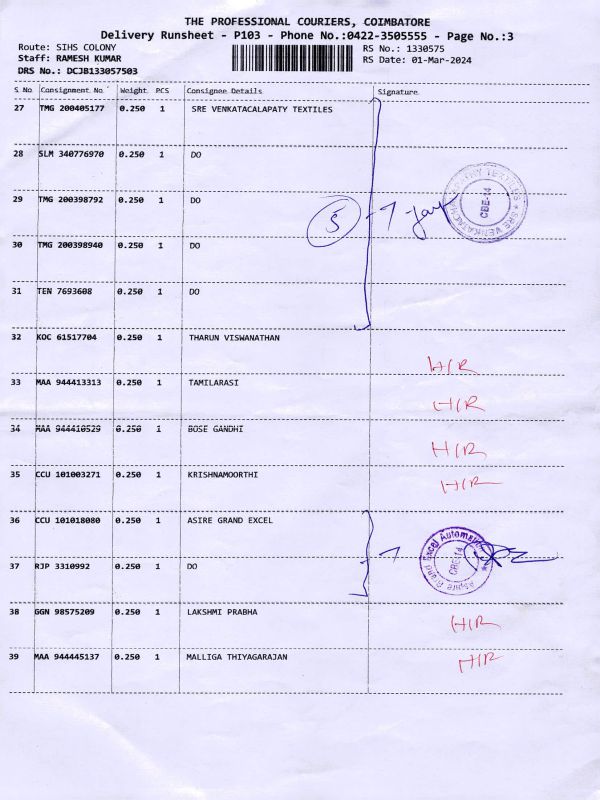 THE PROFESSIONAL COURIERS, COIMBATORE
Delivery Runsheet - P103 - Phone No.:0422-3505555 - Page No.:3
Route: SIHS COLONY
Staff: RAMESH KUMAR
DRS No.: DCJB133057503
RS No.: 1330575
RS Date: 01-Mar-2024
S No Consignment No Weight PCS Consignee Details Signature
27 TMG 200405177 0.250 1 SRE VENKATACALAPATY TEXTILES
28 SLM 340776970 0.250 1 DO
29 TMG 200398792 0.250 1 DO
5
CBE-14
30 TMG 200398940 0.250 1 DO
31 TEN 7693608 0.250 1 DO
32 KOC 61517704 0.250 1 THARUN VISWANATHAN
H/R
33 MAA 944413313 0.250 1 TAMILARASI
H/R
34 MAA 944410529 0.250 1 BOSE GANDHI
H/R
35 CCU 101003271 0.250 1 KRISHNAMOORTHI
H/R
36 CCU 101018080 0.250 1 ASIRE GRAND EXCEL
Aspire Grand Excel Automation
CBE-14
37 RJP 3310992 0.250 1 DO
38 GGN 98575209 0.250 1 LAKSHMI PRABHA
H/R
39 MAA 944445137 0.250 1 MALLIGA THIYAGARAJAN
H/R